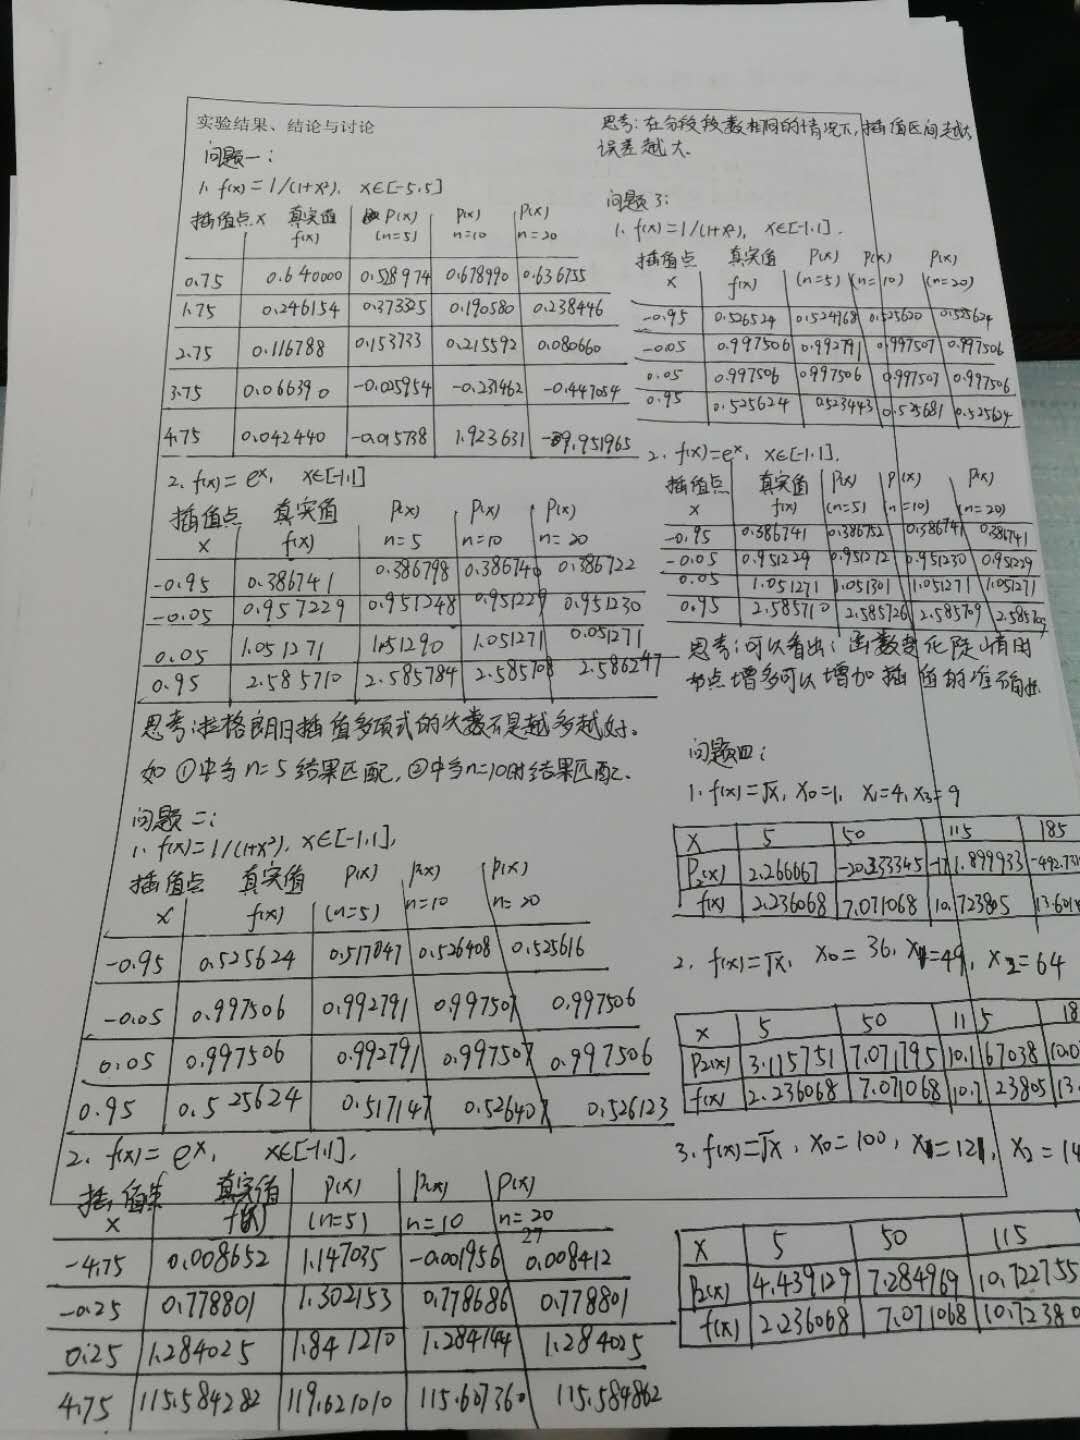 实验结果、结论与讨论
问题一:
1. f(x)=1/(1+x²). x∈[-5,5]
插值点x 真实值f(x) P(x)(n=5) P(x)n=10 P(x)n=20
0.75 0.640000 0.528974 0.678990 0.636755
1.75 0.246154 0.373325 0.190580 0.238446
2.75 0.116788 0.153733 0.215592 0.080660
3.75 0.066390 -0.025954 -0.231462 -0.447054
4.75 0.042440 -0.015738 1.923631 -39.951965
2. f(x)=eˣ, x∈[-1,1]
插值点x 真实值f(x) P(x)n=5 P(x)n=10 P(x)n=20
-0.95 0.386741 0.386798 0.386740 0.386722
-0.05 0.957229 0.951248 0.951229 0.951230
0.05 1.051271 1.051290 1.051271 0.051271
0.95 2.585710 2.585784 2.585708 2.586247
思考:拉格朗日插值多项式的次数不是越多越好。
如①中当n=5结果匹配,②中当n=10时结果匹配.
问题二:
1. f(x)=1/(1+x²). x∈[-1,1],
插值点x 真实值f(x) P(x)(n=5) P(x)n=10 P(x)n=20
-0.95 0.525624 0.517047 0.526408 0.525616
-0.05 0.997506 0.992791 0.997507 0.997506
0.05 0.997506 0.992791 0.997507 0.997506
0.95 0.525624 0.517147 0.526407 0.526123
2. f(x)=eˣ, x∈[-1,1],
插值点x 真实值f(x) P(x)(n=5) P(x)n=10 P(x)n=20
-4.75 0.008652 1.147035 -0.001956 0.008412
27
-0.25 0.778801 1.302153 0.778686 0.778801
0.25 1.284025 1.841210 1.284144 1.284025
4.75 115.584282 119.621010 115.607360 115.584862
思考:在分段段数相同的情况下,插值区间越大
误差越大.
问题3:
1. f(x)=1/(1+x²), x∈[-1,1].
插值点x 真实值f(x) P(x)(n=5) P(x)(n=10) P(x)(n=20)
-0.95 0.526524 0.524768 0.525620 0.525624
-0.05 0.997506 0.992791 0.997507 0.997506
0.05 0.997506 0.997506 0.997507 0.997506
0.95 0.525624 0.523443 0.525681 0.525624
2. f(x)=eˣ, x∈[-1,1].
插值点x 真实值f(x) P(x)(n=5) P(x)(n=10) P(x)(n=20)
-0.95 0.386741 0.386752 0.386741 0.386741
-0.05 0.951229 0.951272 0.951230 0.951229
0.05 1.051271 1.051301 1.051271 1.051271
0.95 2.585710 2.585726 2.585709
思考:可以看出:函数变化陡峭时
节点增多可以增加插值的准确性.
问题四:
1. f(x)=√x, x₀=1, x₁=4, x₃=9
x 5 50 115 185
P₂(x) 2.266667 -20.333345 -171.899933
f(x) 2.236068 7.071068 10.723805
2. f(x)=√x, x₀=36, x₁=49, x₂=64
x 5 50 115 18
P₂(x) 3.115751 7.071795 10.167038 10.0
f(x) 2.236068 7.071068 10.723805 13.
3. f(x)=√x, x₀=100, x₁=121, x₂=14
x 5 50 115
P₂(x) 4.439129 7.284969 10.722755
f(x) 2.236068 7.071068 10.72380